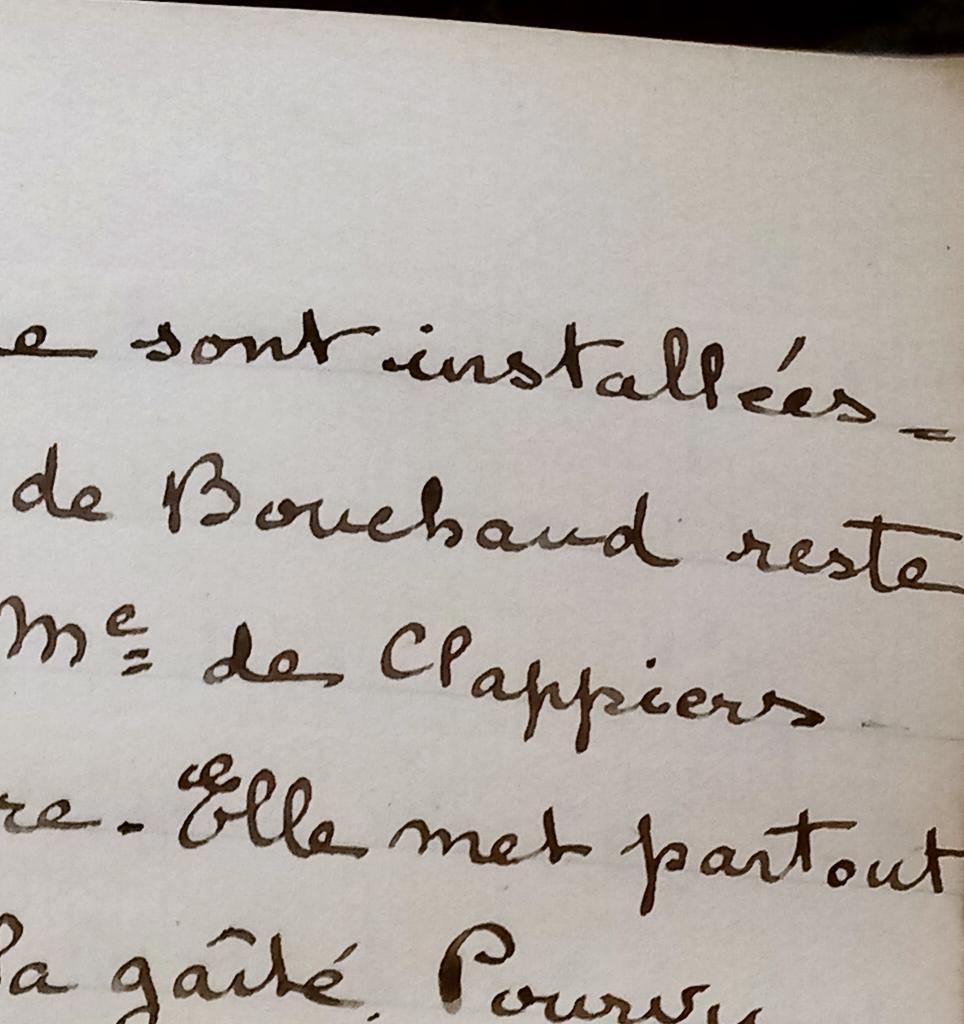 e sont installées =
de Bouchaud reste
Mᵉ de Clappiers
re. Elle met partout
la gaîté. Pourvu